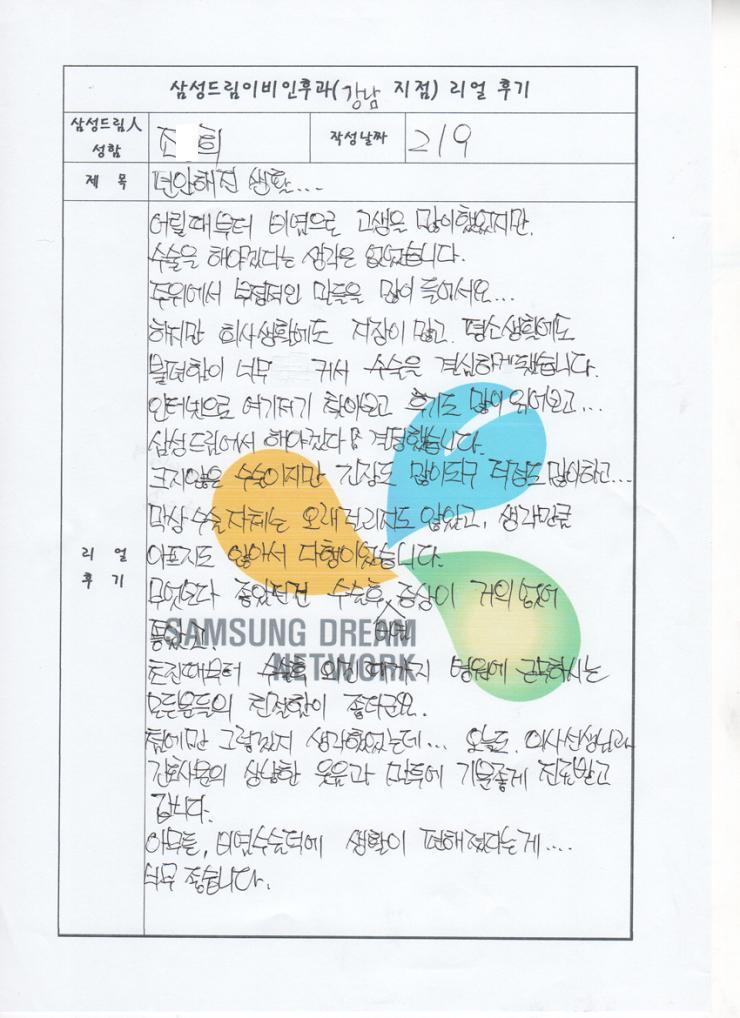 삼성드림이비인후과(강남 지점) 리얼 후기
삼성드림人 성함
조 희
작성날짜
2/9
제 목
편안해진 생활...
리 얼 후 기
어릴때부터 비염으로 고생은 많이했었지만.
수술을 해야겠다는 생각은 없었습니다.
주위에서 부정적인 말들을 많이 들어서요...
하지만 회사생활에도 지장이 많고. 평소생활에도
불편함이 너무 커서 수술을 결심하게됐습니다.
인터넷으로 여기저기 찾아보고 후기도 많이 읽어보고...
삼성드림에서 해야겠다 결정했습니다.
크지않은 수술이지만 긴장도 많이되구 걱정도 많이하고...
막상 수술자체는 오래 걸리지도 않았고, 생각만큼
아프지도 않아서 다행이었습니다.
무엇보다 좋았던건 수술후, 비염 증상이 거의 없어
SAMSUNG DREAM
NETWORK
초진때부터 수술후 외진때까지 병원에 근무하시는
모든분들의 친절함이 좋더군요.
첨에만 그렇겠지 생각했었는데... 오늘도. 의사선생님과
간호사분의 상냥한 웃음과 말투에 기분좋게 진료받고
갑니다.
아무튼, 비염수술덕에 생활이 편해졌다는게....
너무 좋습니다.